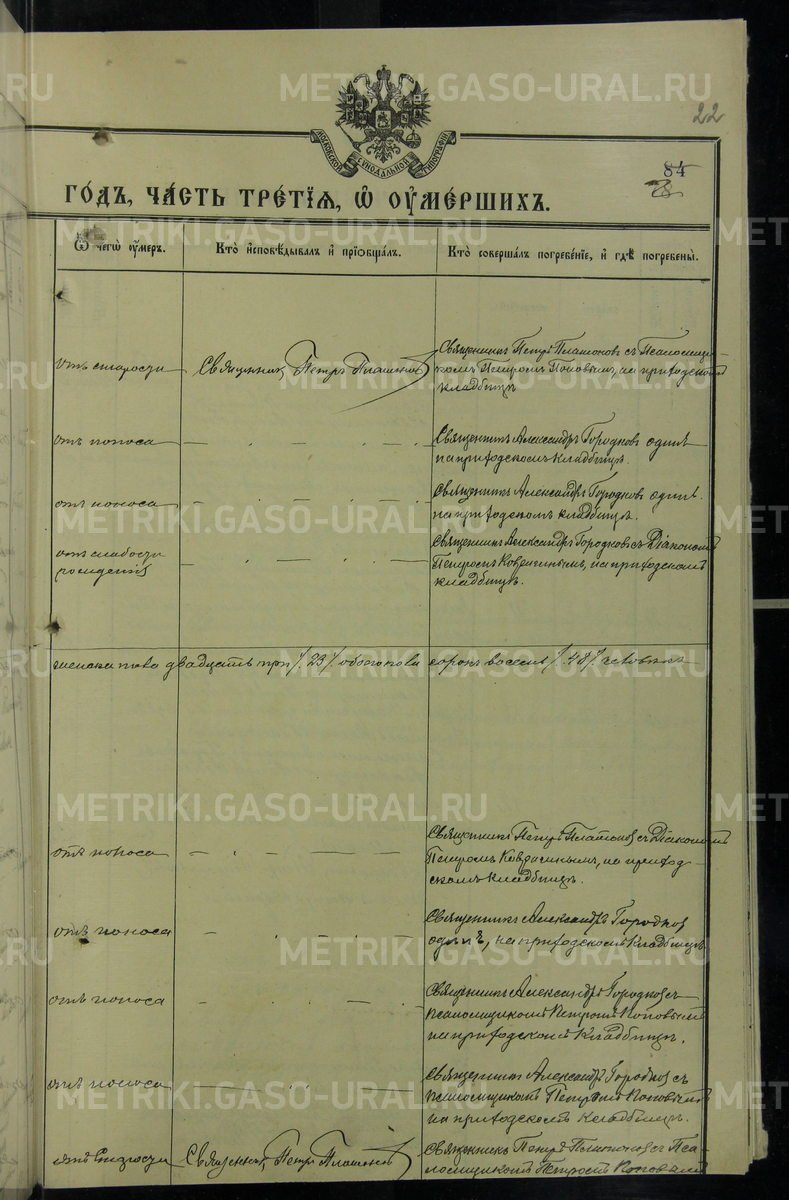 22
84
МОСКОВСКОЙ СѴНОДАЛЬНОЙ ТИПОГРАФІИ
ГО́ДЪ, ЧА́СТЬ ТРЕ́ТІѦ, Ѡ҆ ОУ҆МЕ́РШИХЪ.
Ѿ чегѡ̀ оу҆́меръ.
Кто̀ и҆сповѣ́дывалъ и҆ прїѡбща́лъ.
Кто̀ соверша́лъ погребе́нїе, и҆ гдѣ̀ погребены̀.
отъ старости
Священникъ Петръ Платоновъ
Священникъ Петръ Платоновъ съ Псаломщи-
комъ Петромъ Поповымъ, на приходскомъ
кладбищѣ
отъ поноса
Священникъ Александръ Городковъ одинъ
на приходскомъ кладбищѣ.
отъ поноса
Священникъ Александръ Городковъ одинъ.
на приходскомъ кладбищѣ.
отъ слабости
рожденія
Священникъ Александръ Городковъ съ Діакономъ
Петромъ на приходскомъ
кладбищѣ.
женска пола двадцать три /23/ обоего пола сорокъ восемь /48/ человѣкъ
отъ поноса
Священникъ Петръ Платоновъ съ Діакономъ
Петромъ на приход-
скомъ кладбищѣ.
отъ поноса
Священникъ Александръ Городков
одинъ, на приходскомъ кладбищѣ
отъ поноса
Священникъ Александръ Городков съ
псаломщикомъ Петромъ Поповымъ
на приходскомъ кладбищѣ.
отъ поноса
Священникъ Александръ Городков съ
псаломщикомъ Петромъ Поповымъ
на приходскомъ кладбищѣ.
отъ старости
Священникъ Петръ Платонов
Священникъ Петръ Платонов съ Пса-
ломщикомъ Петромъ Поповымъ
METRIKI.GASO-URAL.RU